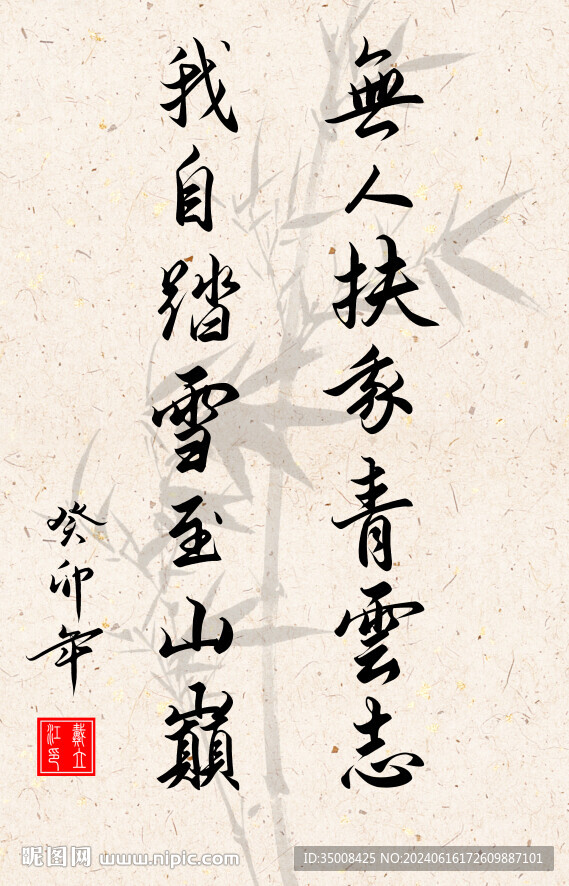 無人扶我青雲志
我自踏雪至山巔
癸卯年
戴立江印
昵图网 www.nipic.com
ID:35008425 NO:20240616172609887101